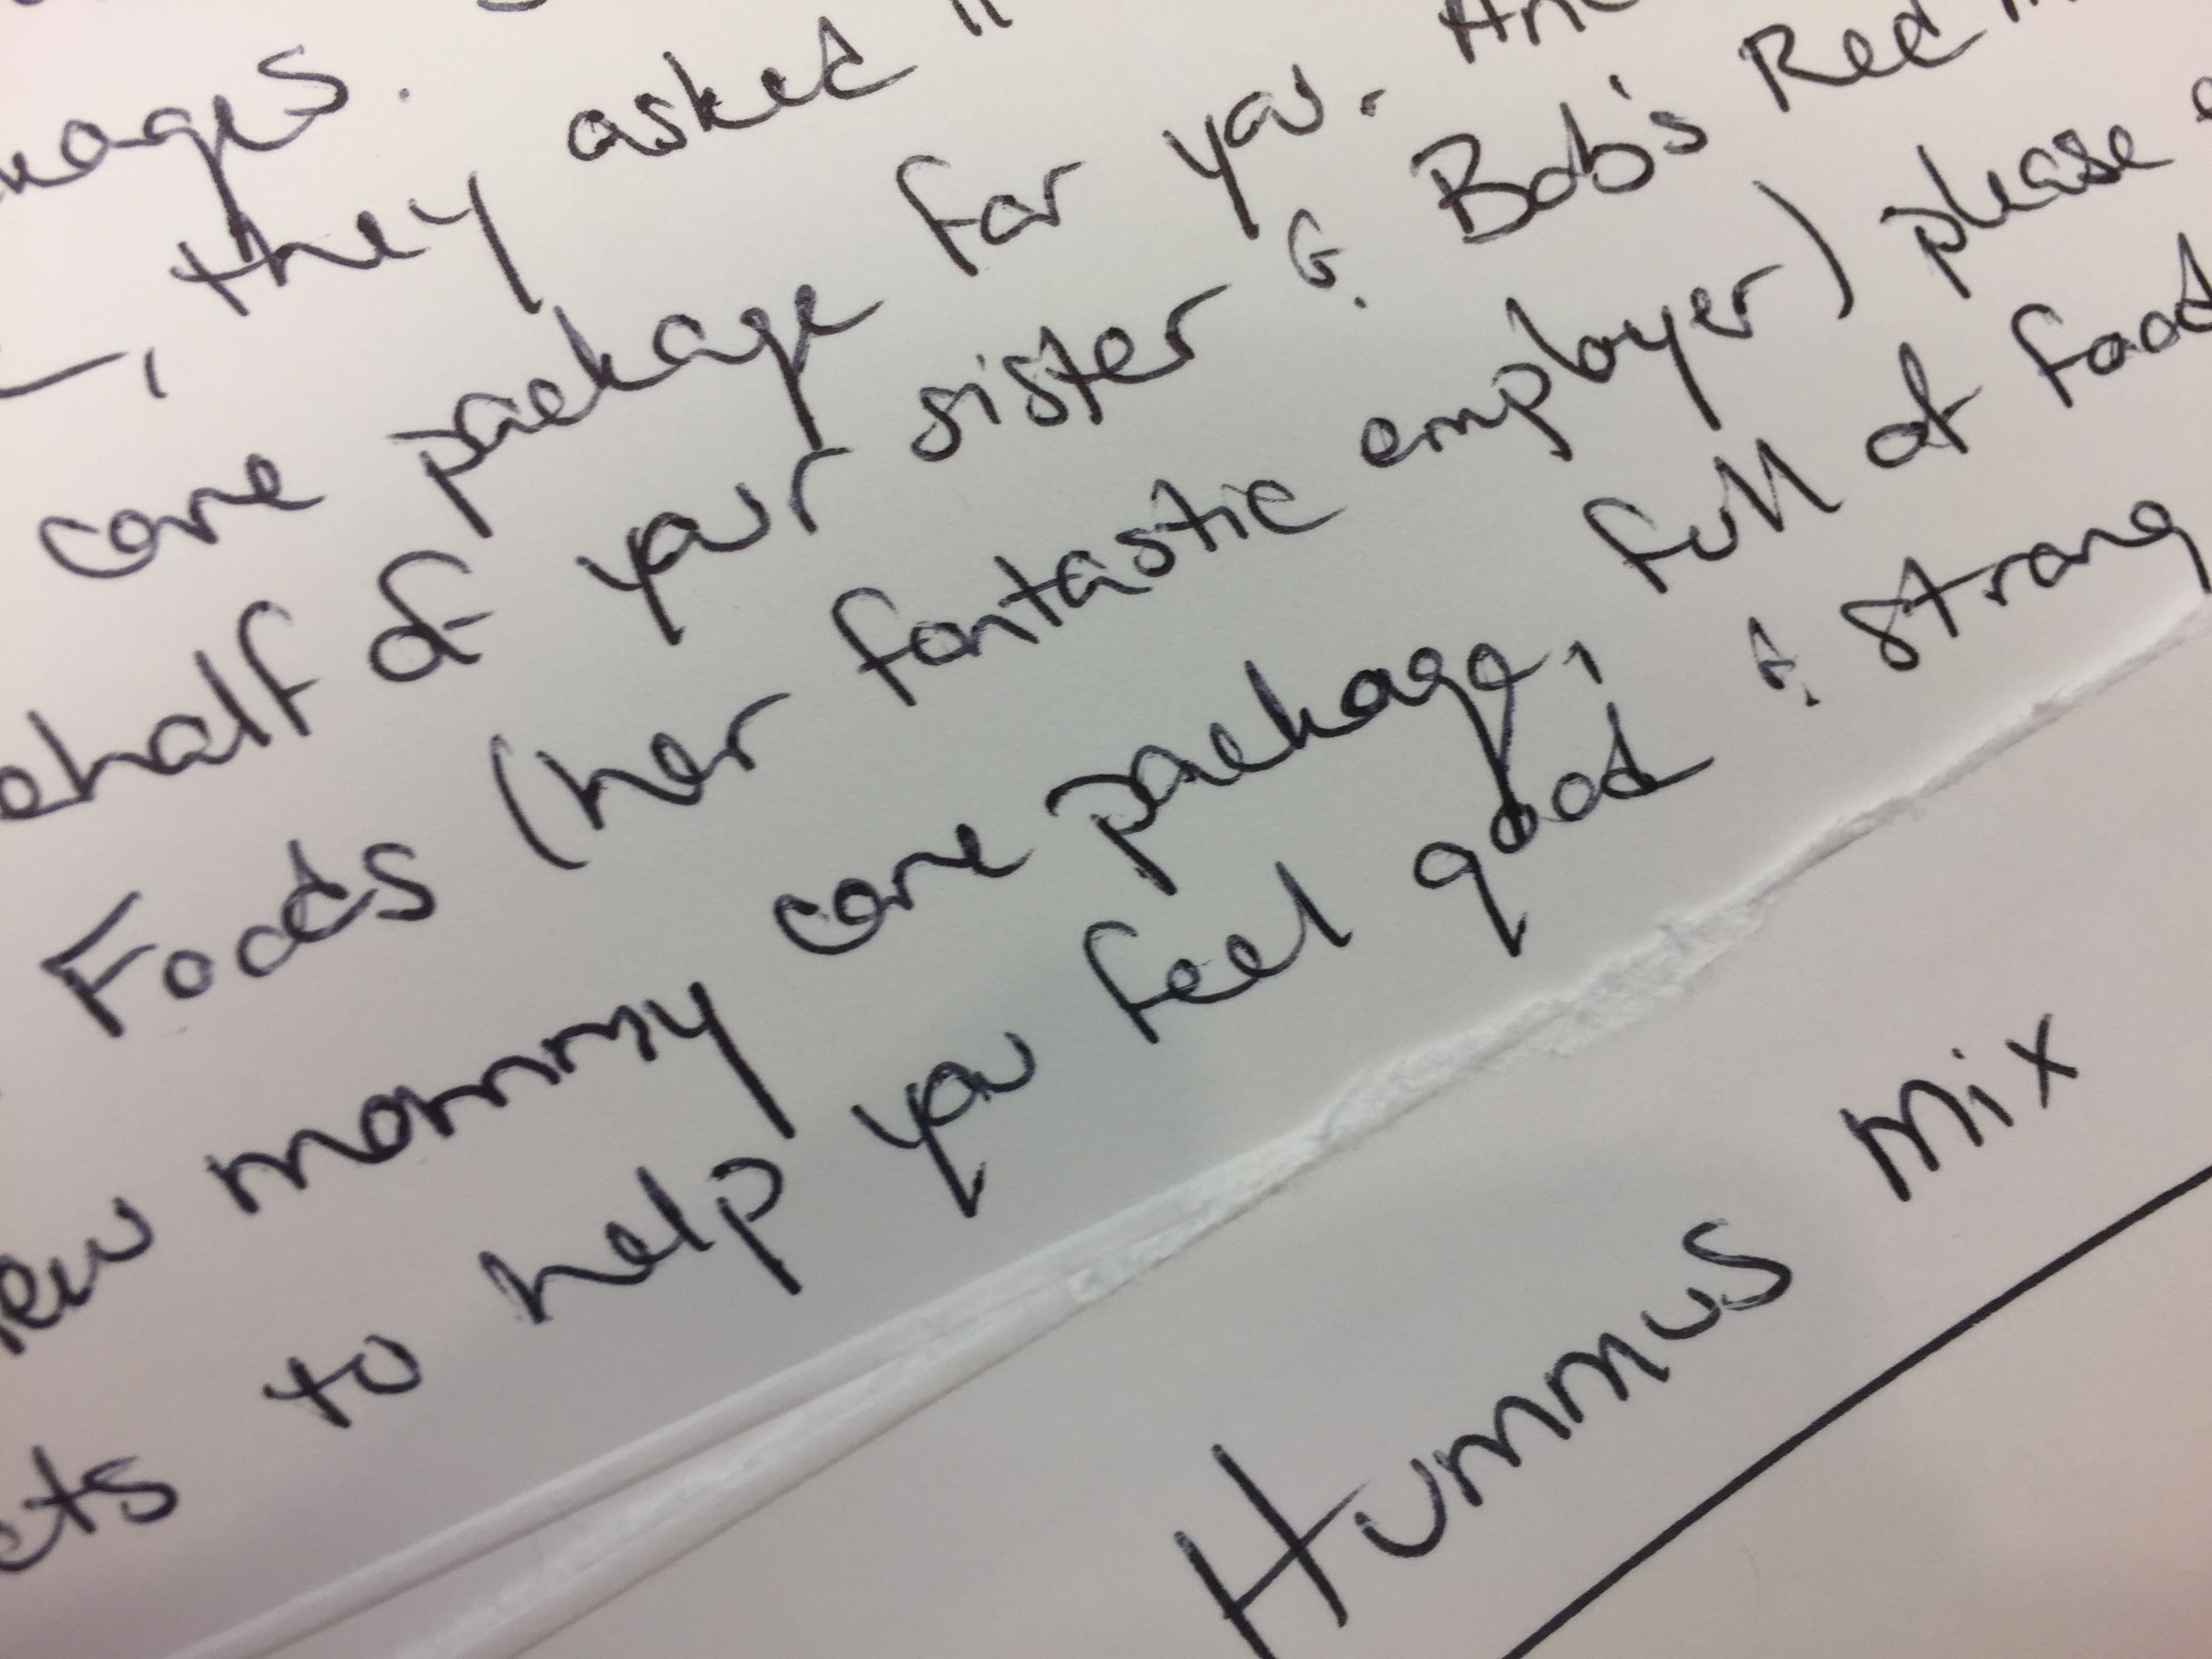 they asked "
care package for you.
behalf of your sister & Bob's Red
Foods (her fantastic employer) please
new mommy care package, full of food
to help you feel good & strong
Hummus Mix